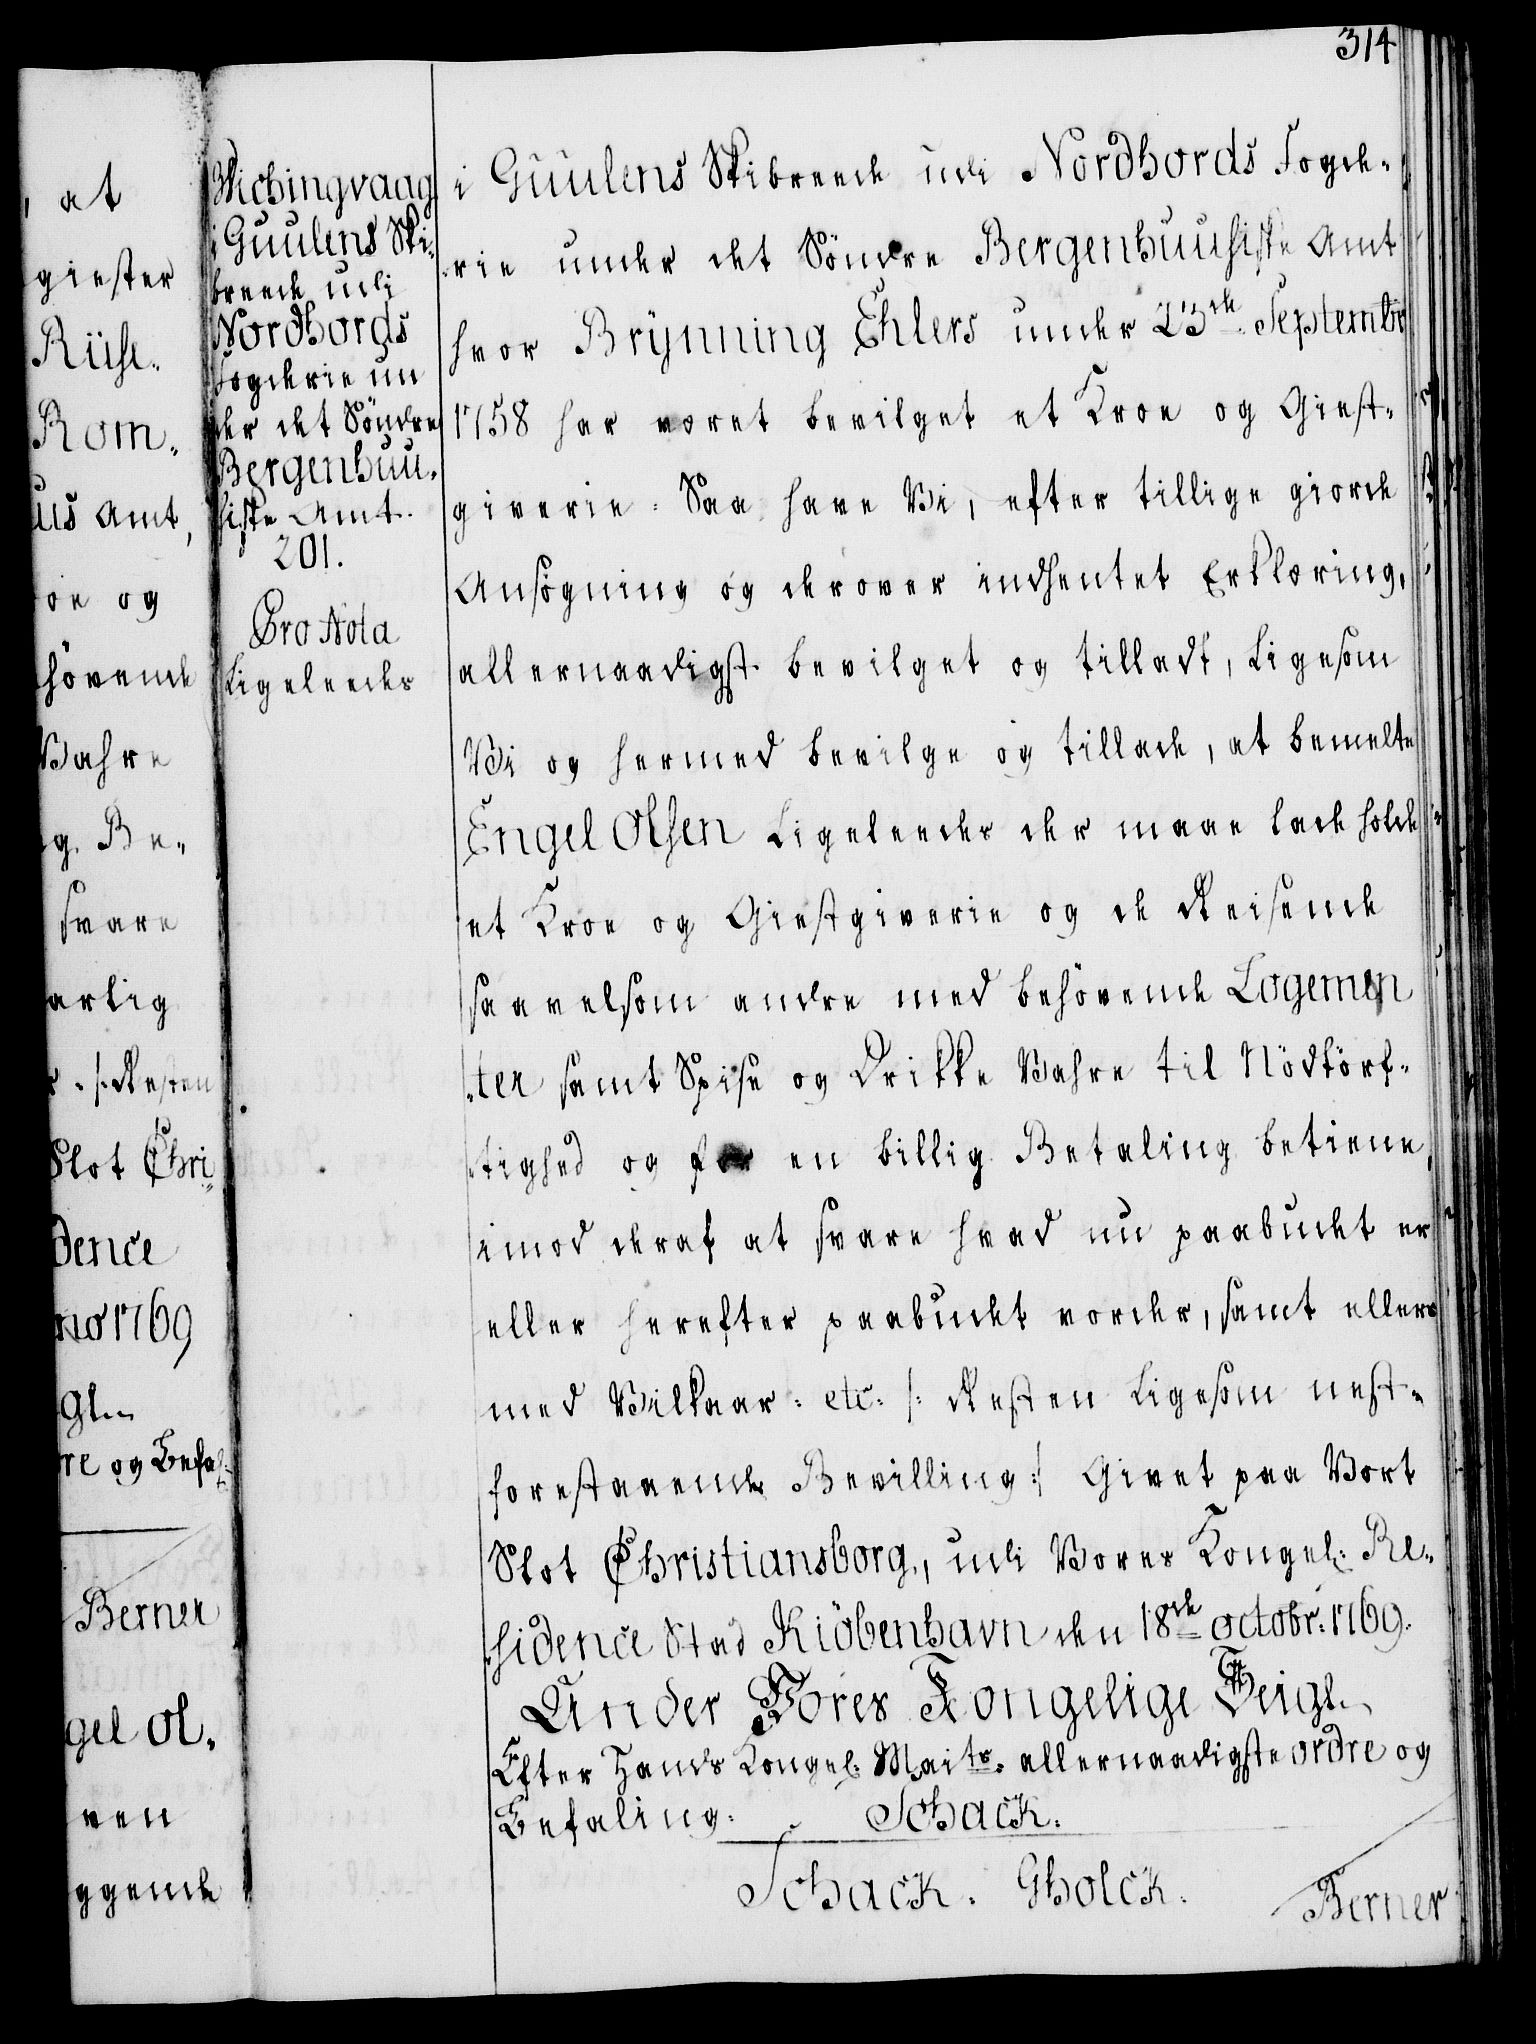 314
, at
giester
Riise-
Rom-
uus Amt,
oe og
hövende
Vahre
g Be-
svare
artig
r. /: Resten
Slot Chri-
dence
nno 1769
Gl.
re og Befal:
Berner
gel Ol-
ven
ggende
Wichingvaag
i Guulens Ski-
breede udi
Nordhords
Fogderie un
der det Söndre
Bergenhuu-
siske Amt.
201.
Pro Nota
Ligeleedes
i Guulens Skibreede udi Nordhords Fogde-
rie under det Söndre Bergenhuusiske Amt
hvor Brynning Ehlers under 23de Septembr
1758 har været bevilget et Kroe og Giest-
giverie: Saa have Vi, efter tillige giorde
Ansögning og derover indhentet Erklæring,
allernaadigst bevilget og tilladt, ligesom
Vi og hermed bevilge og tillade, at bemelte
Engel Olsen ligeleedes der maae lade holde
et Kroe og Giestgiverie og de Reisende
saavelsom andre med behövende Logemen
ter samt Spise og Drikke Vahre til Nödtörf-
tighed og for en billig Betaling betiene,
imod deraf at svare hvad nu paabudet er
eller herefter paabudet vorder, samt ellers
med Vilkaar: etc: /: Resten ligesom nest-
forestaaende Bevilling :/ Givet paa Vort
Slot Christiansborg, udi Vores Kongel: Re-
sidence Stad Kiöbenhavn den 18de octobr: 1769.
Under Vores Kongelige Seigl.
Efter Hands Kongel: Maits. allernaadigste ordre og
Befaling. Schack.
Schack. Gholck.
Berner